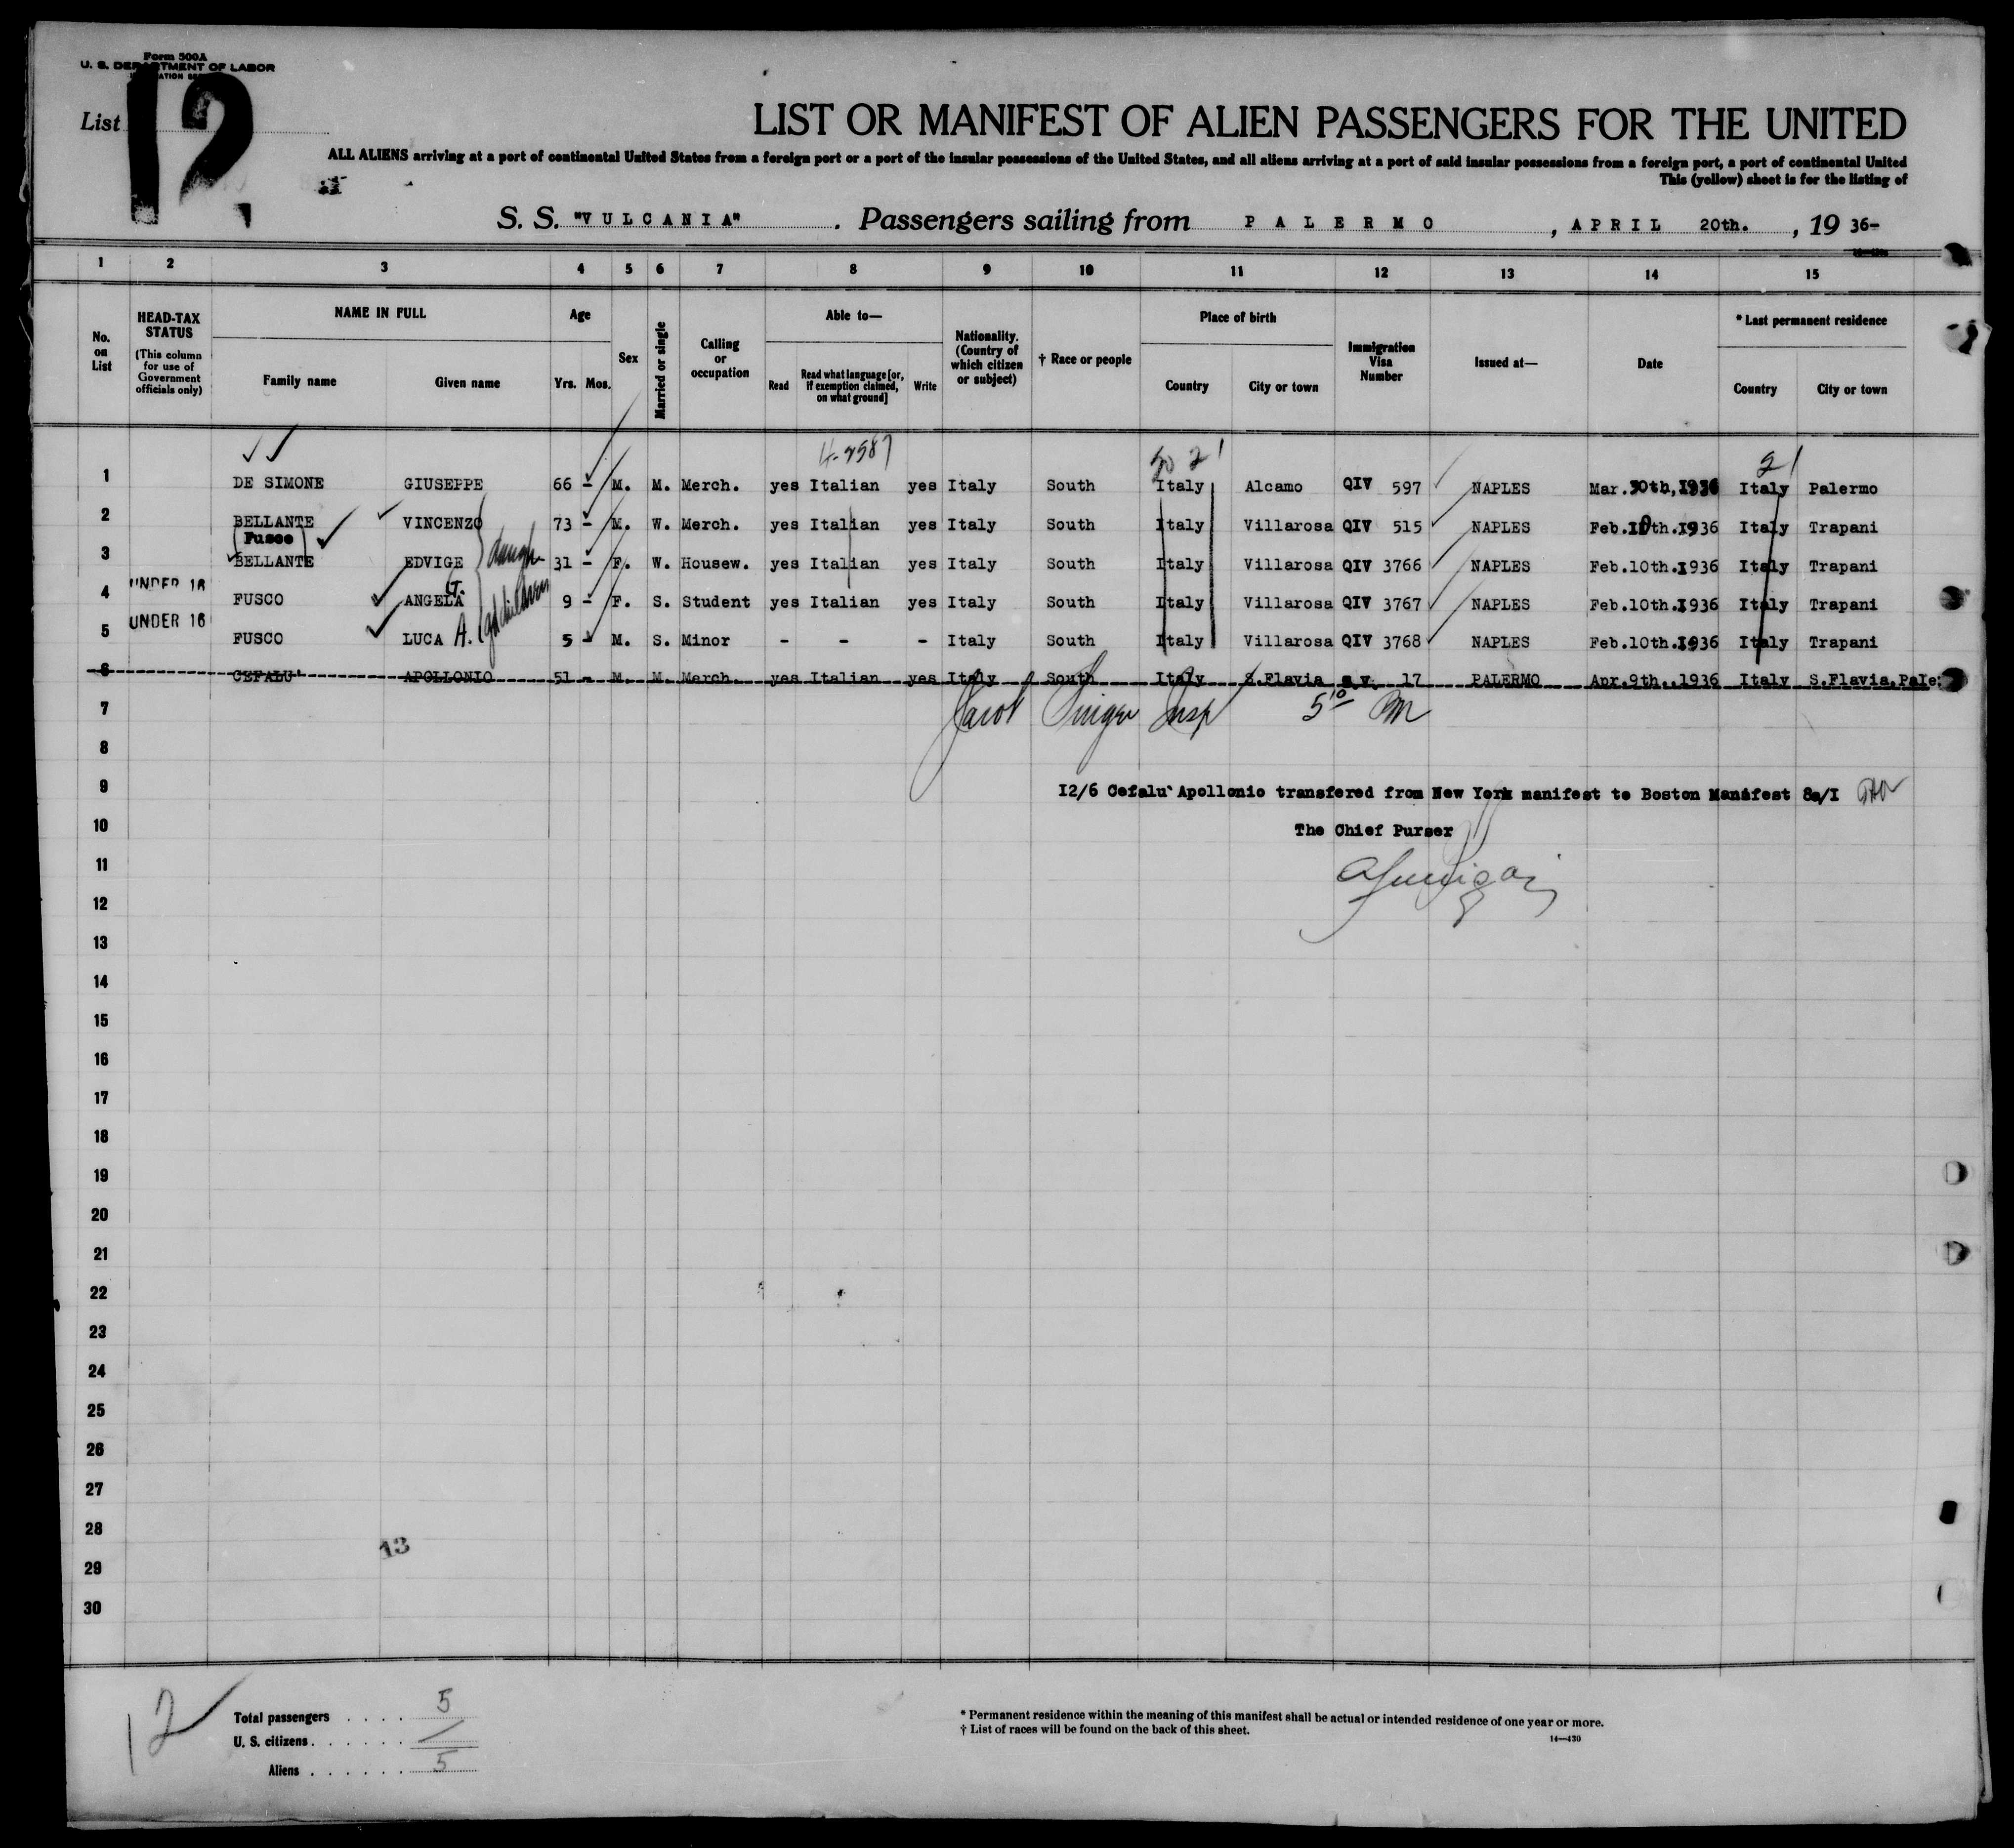 Form 500A
U. S. DEPARTMENT OF LABOR
List 12
LIST OR MANIFEST OF ALIEN PASSENGERS FOR THE UNITED
ALL ALIENS arriving at a port of continental United States from a foreign port or a port of the insular possessions of the United States, and all aliens arriving at a port of said insular possessions from a foreign port, a port of continental United
This (yellow) sheet is for the listing of
S. S. "VULCANIA". Passengers sailing from PALERMO, APRIL 20th., 1936-
1 2 3 4 5 6 7 8 9 10 11 12 13 14 15
No. on List
HEAD-TAX STATUS
(This column for use of Government officials only)
NAME IN FULL
Family name Given name
Age
Yrs. Mos.
Sex
Married or single
Calling or occupation
Able to—
Read
Read what language [or, if exemption claimed, on what ground]
Write
Nationality. (Country of which citizen or subject)
† Race or people
Place of birth
Country City or town
Immigration Visa Number
Issued at—
Date
* Last permanent residence
Country City or town
1 DE SIMONE GIUSEPPE 66 - M. M. Merch. yes Italian yes Italy South Italy Alcamo QIV 597 NAPLES Mar.30th,1936 Italy Palermo
2 BELLANTE VINCENZO 73 - M. W. Merch. yes Italian yes Italy South Italy Villarosa QIV 515 NAPLES Feb.10th.1936 Italy Trapani
(Fusco)
3 BELLANTE EDVIGE daugh 31 - F. W. Housew. yes Italian yes Italy South Italy Villarosa QIV 3766 NAPLES Feb.10th.1936 Italy Trapani
4 UNDER 16 FUSCO ANGELA G. gdchildren 9 - F. S. Student yes Italian yes Italy South Italy Villarosa QIV 3767 NAPLES Feb.10th.1936 Italy Trapani
5 UNDER 16 FUSCO LUCA A. 5 - M. S. Minor - - - Italy South Italy Villarosa QIV 3768 NAPLES Feb.10th.1936 Italy Trapani
6 CEFALU' APOLLONIO 51 - M. M. Merch. yes Italian yes Italy South Italy S.Flavia 17 PALERMO Apr.9th.,1936 Italy S.Flavia,Pale
7 Singer Insp 5 10 PM
8
9 12/6 Cefalu' Apollonio transfered from New York manifest to Boston Manifest 8a/I
10 The Chief Purser
11
12
13
14
15
16
17
18
19
20
21
22
23
24
25
26
27
28
13
29
30
12
Total passengers . . . . 5
U. S. citizens . . . . . . /
Aliens . . . . . . 5
* Permanent residence within the meaning of this manifest shall be actual or intended residence of one year or more.
† List of races will be found on the back of this sheet.
14—430